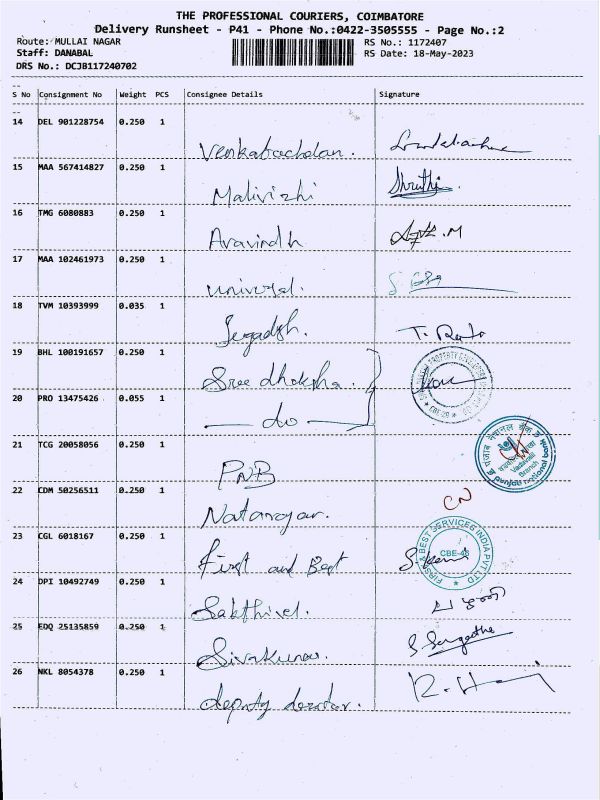 THE PROFESSIONAL COURIERS, COIMBATORE
Delivery Runsheet - P41 - Phone No.:0422-3505555 - Page No.:2
Route: MULLAI NAGAR RS No.: 1172407
Staff: DANABAL RS Date: 18-May-2023
DRS No.: DCJB117240702
S No Consignment No Weight PCS Consignee Details Signature
14 DEL 901228754 0.250 1
Venkatachalan.
15 MAA 567414827 0.250 1
Malivizhi Shruthi
16 TMG 6080883 0.250 1
Aravindh
17 MAA 102461973 0.250 1
universal.
18 TVM 10393999 0.035 1
Jegadish.
19 BHL 100191657 0.250 1
Sree dhaksha.
20 PRO 13475426 0.055 1
do
21 TCG 20058056 0.250 1
PNB
punjab national bank
Vadavalli
Branch
22 CDM 50256511 0.250 1
Natarajar. CN
23 CGL 6018167 0.250 1
First and Best
FIRST & BEST SERVICES INDIA PVT LTD
24 DPI 10492749 0.250 1
Sakthivel.
25 EDQ 25135859 0.250 1
Sivakumar. S. Sangeetha
26 NKL 8054378 0.250 1
deputy